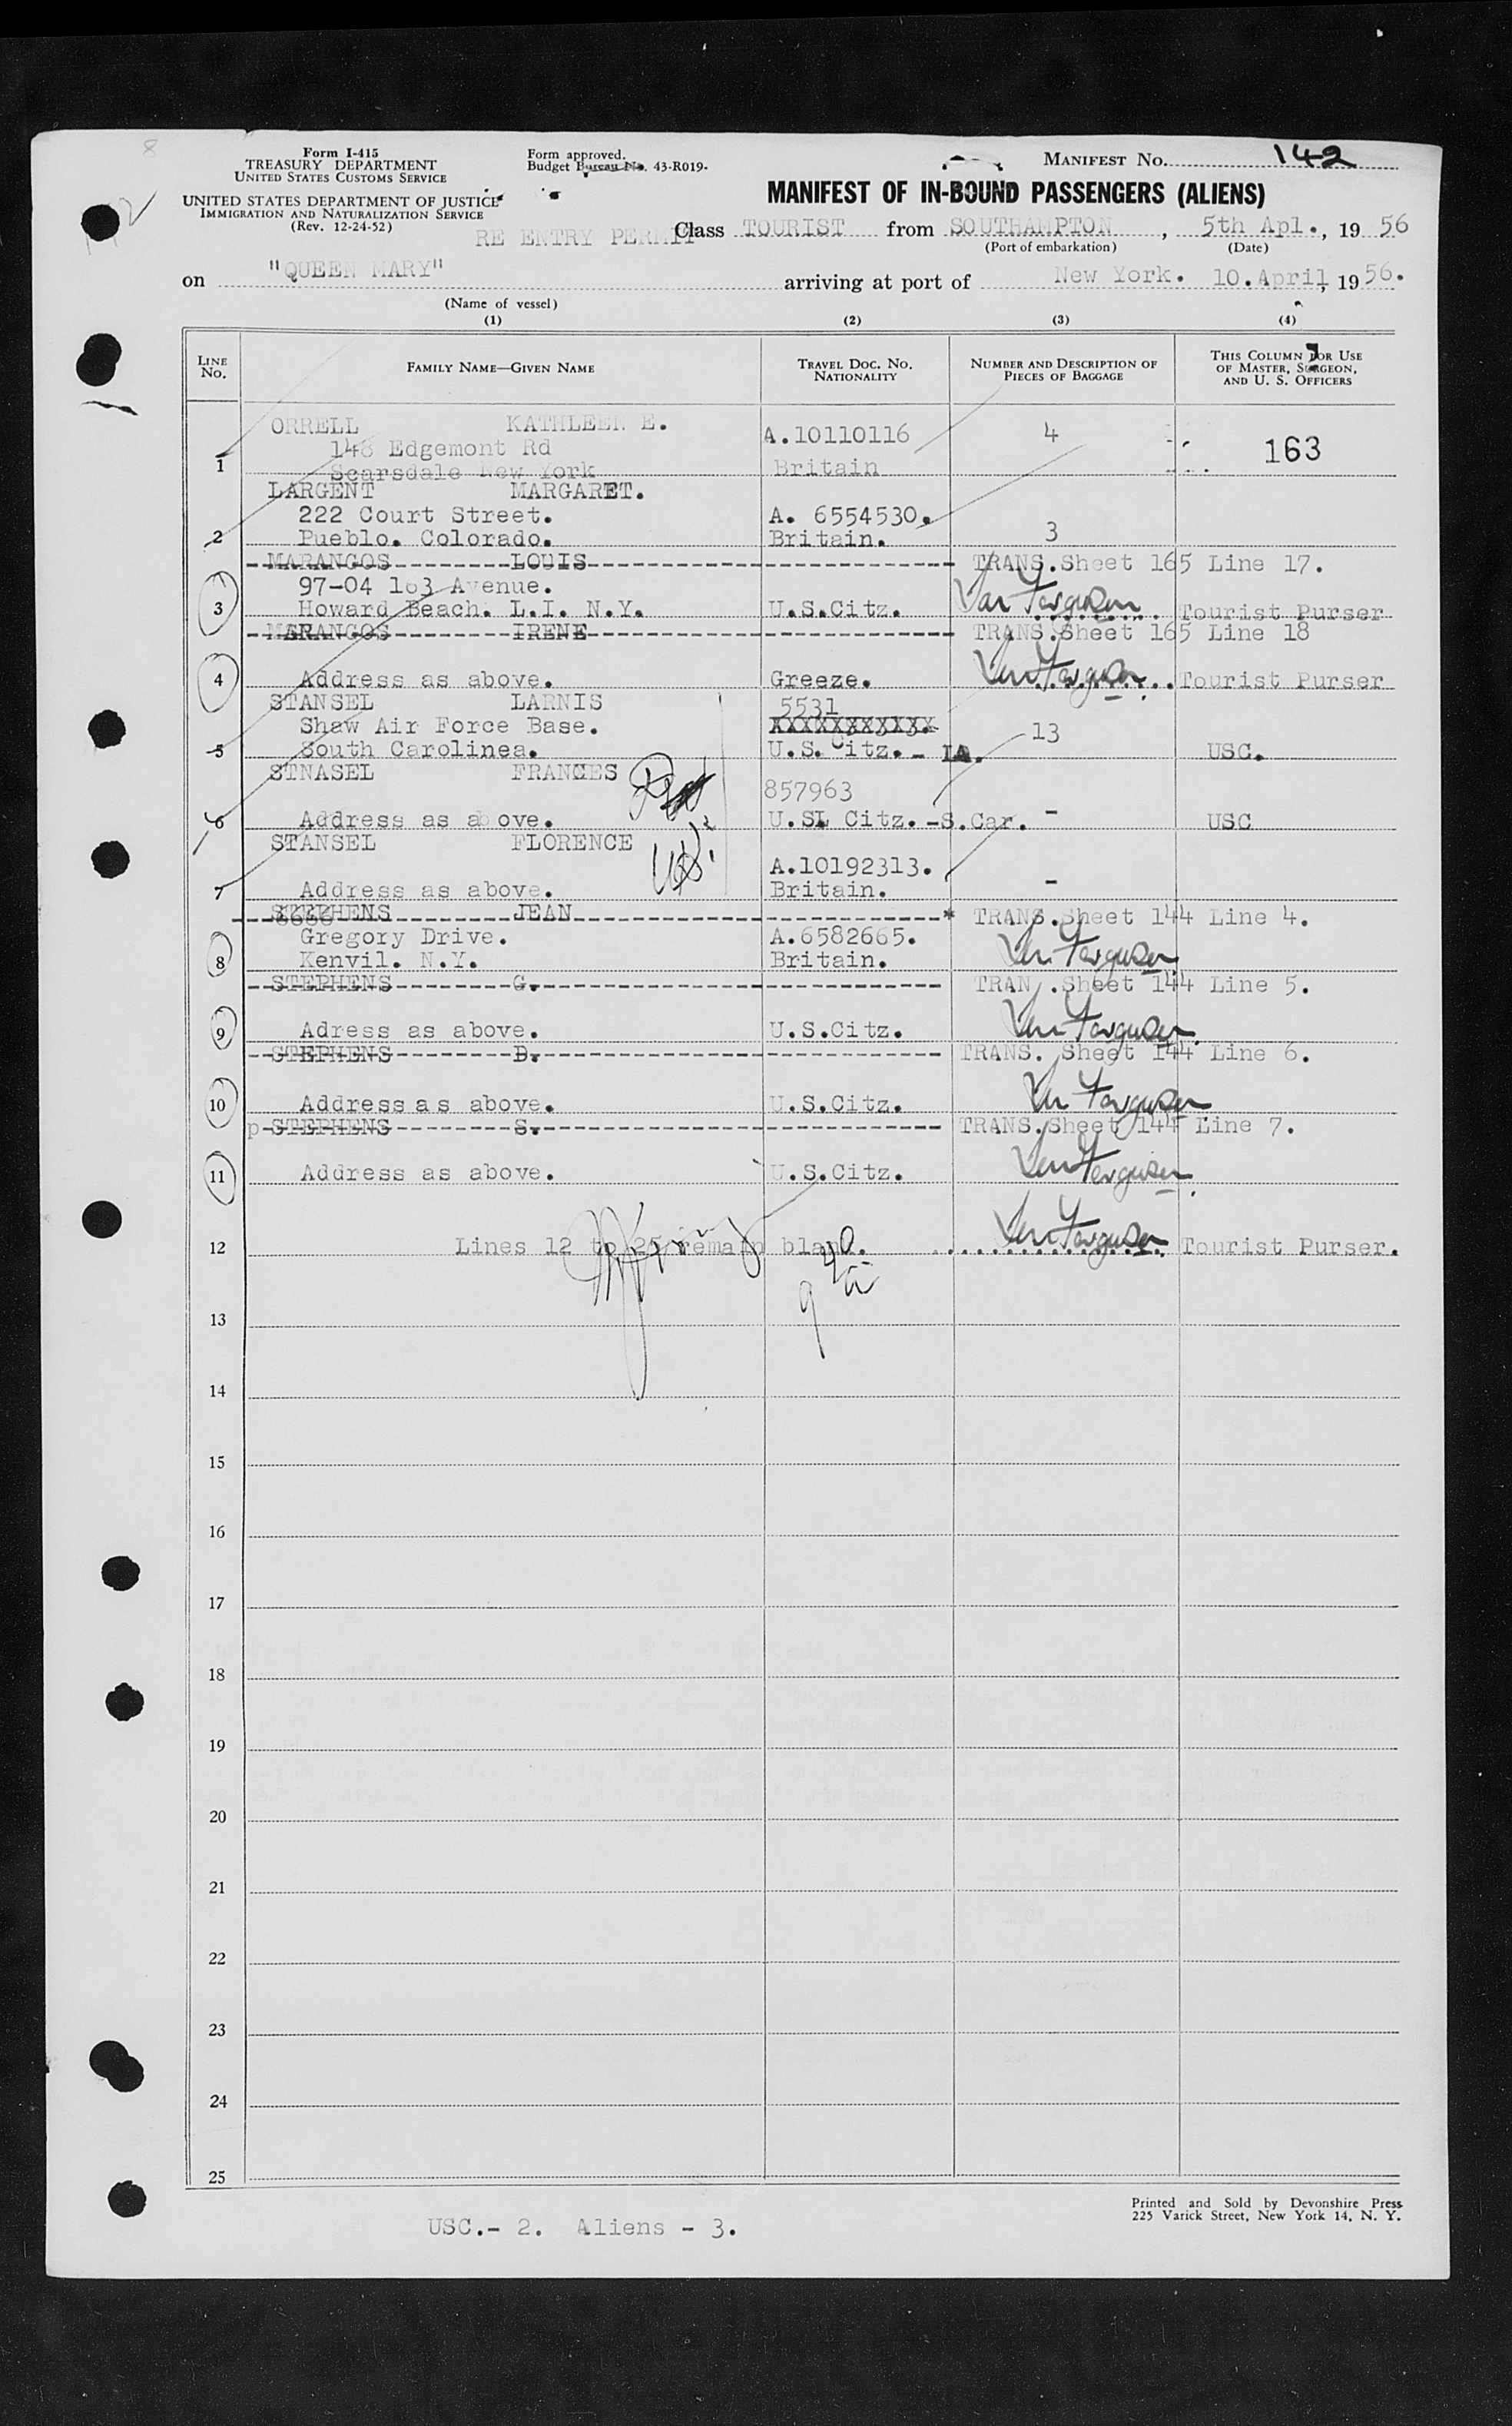 Form I-415
TREASURY DEPARTMENT
UNITED STATES CUSTOMS SERVICE
UNITED STATES DEPARTMENT OF JUSTICE
IMMIGRATION AND NATURALIZATION SERVICE
(Rev. 12-24-52)
Form approved.
Budget Bureau No. 43-R019.
MANIFEST NO. 142
MANIFEST OF IN-BOUND PASSENGERS (ALIENS)
RE ENTRY PERMIT Class TOURIST from SOUTHAMPTON, 5th Apl., 19 56
(Port of embarkation) (Date)
on "QUEEN MARY" arriving at port of New York. 10.April, 19 56.
(Name of vessel)
(1) (2) (3) (4)
LINE NO. FAMILY NAME—GIVEN NAME TRAVEL DOC. NO. NATIONALITY NUMBER AND DESCRIPTION OF PIECES OF BAGGAGE THIS COLUMN FOR USE OF MASTER, SURGEON, AND U. S. OFFICERS
ORRELL KATHLEEN E.
148 Edgemont Rd A.10110116 4 163
1 Scarsdale New York Britain
LARGENT MARGARET.
222 Court Street. A. 6554530.
2 Pueblo. Colorado. Britain. 3
MARANGOS LOUIS TRANS.Sheet 165 Line 17.
97-04 163 Avenue.
3 Howard Beach. L.I. N.Y. U.S.Citz. Ferguson Tourist Purser
MARANGOS IRENE TRANS.Sheet 165 Line 18
4 Address as above. Greeze. Ferguson Tourist Purser
STANSEL LARNIS 5531
Shaw Air Force Base. XXXXXXXXXXX 13
5 South Carolinea. U.S. Citz. - LA. USC.
STNASEL FRANCES
857963
6 Address as above. U.S. Citz. -S.Car. - USC
STANSEL FLORENCE
A.10192313.
7 Address as above. Britain. -
STEPHENS JEAN * TRANS.Sheet 144 Line 4.
Gregory Drive. A.6582665.
8 Kenvil. N.Y. Britain. Ferguson
STEPHENS G. TRAN .Sheet 144 Line 5.
9 Adress as above. U.S.Citz. Ferguson
STEPHENS D. TRANS. Sheet 144 Line 6.
10 Address as above. U.S.Citz. Ferguson
p STEPHENS S. TRANS.Sheet 144 Line 7.
11 Address as above. U.S.Citz. Ferguson
12 Lines 12 to 25 remain blank. Ferguson Tourist Purser.
13
14
15
16
17
18
19
20
21
22
23
24
25
Printed and Sold by Devonshire Press
225 Varick Street, New York 14, N. Y.
USC.- 2. Aliens - 3.